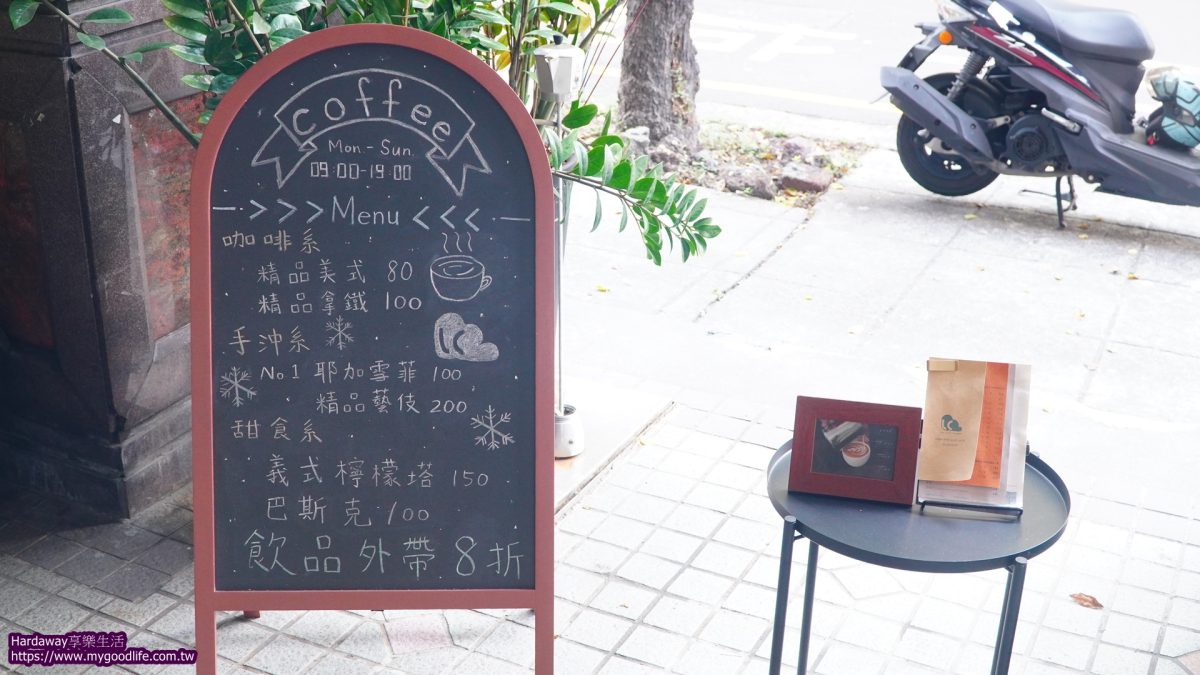 coffee
Mon.-Sun.
09:00-19:00
Menu
咖啡系
精品美式 80
精品拿鐵 100
手沖系
No1 耶加雪菲 100
精品藝伎 200
甜食系
義式檸檬塔 150
巴斯克 100
飲品外帶8折
Hardaway享樂生活
https://www.mygoodlife.com.tw